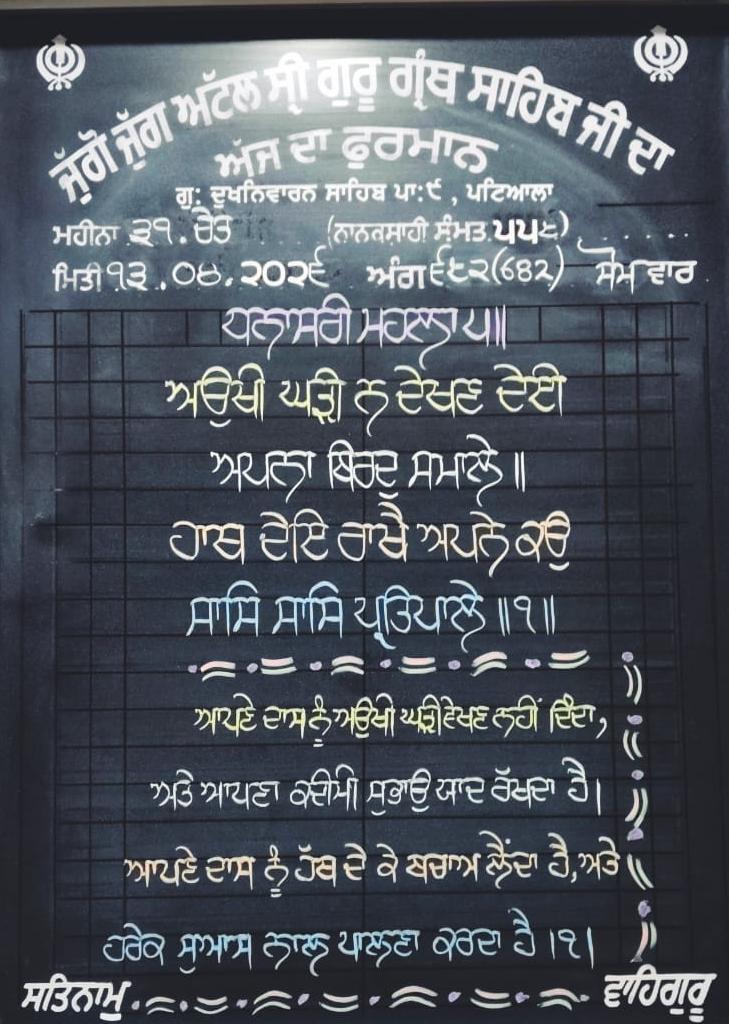 ਜੁੱਗੋ ਜੁੱਗ ਅੱਟਲ ਸ੍ਰੀ ਗੁਰੂ ਗ੍ਰੰਥ ਸਾਹਿਬ ਜੀ ਦਾ
ਅੱਜ ਦਾ ਫੁਰਮਾਨ
ਗੁ: ਦੂਖਨਿਵਾਰਨ ਸਾਹਿਬ ਪਾ:੯ , ਪਟਿਆਲਾ
ਮਹੀਨਾ ੩੧. ਚੇਤ (ਨਾਨਕਸਾਹੀ ਸੰਮਤ ੫੫੮)
ਮਿਤੀ ੧੩.੦੪.੨੦੨੬ ਅੰਗ ੬੮੨(682) ਸੋਮ ਵਾਰ
ਧਨਾਸਰੀ ਮਹਲਾ ੫॥
ਅਉਖੀ ਘੜੀ ਨ ਦੇਖਣ ਦੇਈ
ਅਪਨਾ ਬਿਰਦੁ ਸਮਾਲੇ॥
ਹਾਥ ਦੇਇ ਰਾਖੈ ਅਪਨੇ ਕਉ
ਸਾਸਿ ਸਾਸਿ ਪ੍ਰਤਿਪਾਲੇ॥੧॥
ਆਪਣੇ ਦਾਸ ਨੂੰ ਅਉਖੀ ਘੜੀ ਵੇਖਣ ਨਹੀਂ ਦਿੰਦਾ,
ਅਤੇ ਆਪਣਾ ਕਦੀਮੀ ਸੁਭਾਉ ਯਾਦ ਰੱਖਦਾ ਹੈ।
ਆਪਣੇ ਦਾਸ ਨੂੰ ਹੱਥ ਦੇ ਕੇ ਬਚਾਅ ਲੈਂਦਾ ਹੈ, ਅਤੇ
ਹਰੇਕ ਸੁਆਸ ਨਾਲ ਪਾਲਣਾ ਕਰਦਾ ਹੈ।੧।
ਸਤਿਨਾਮੁ ਵਾਹਿਗੁਰੂ